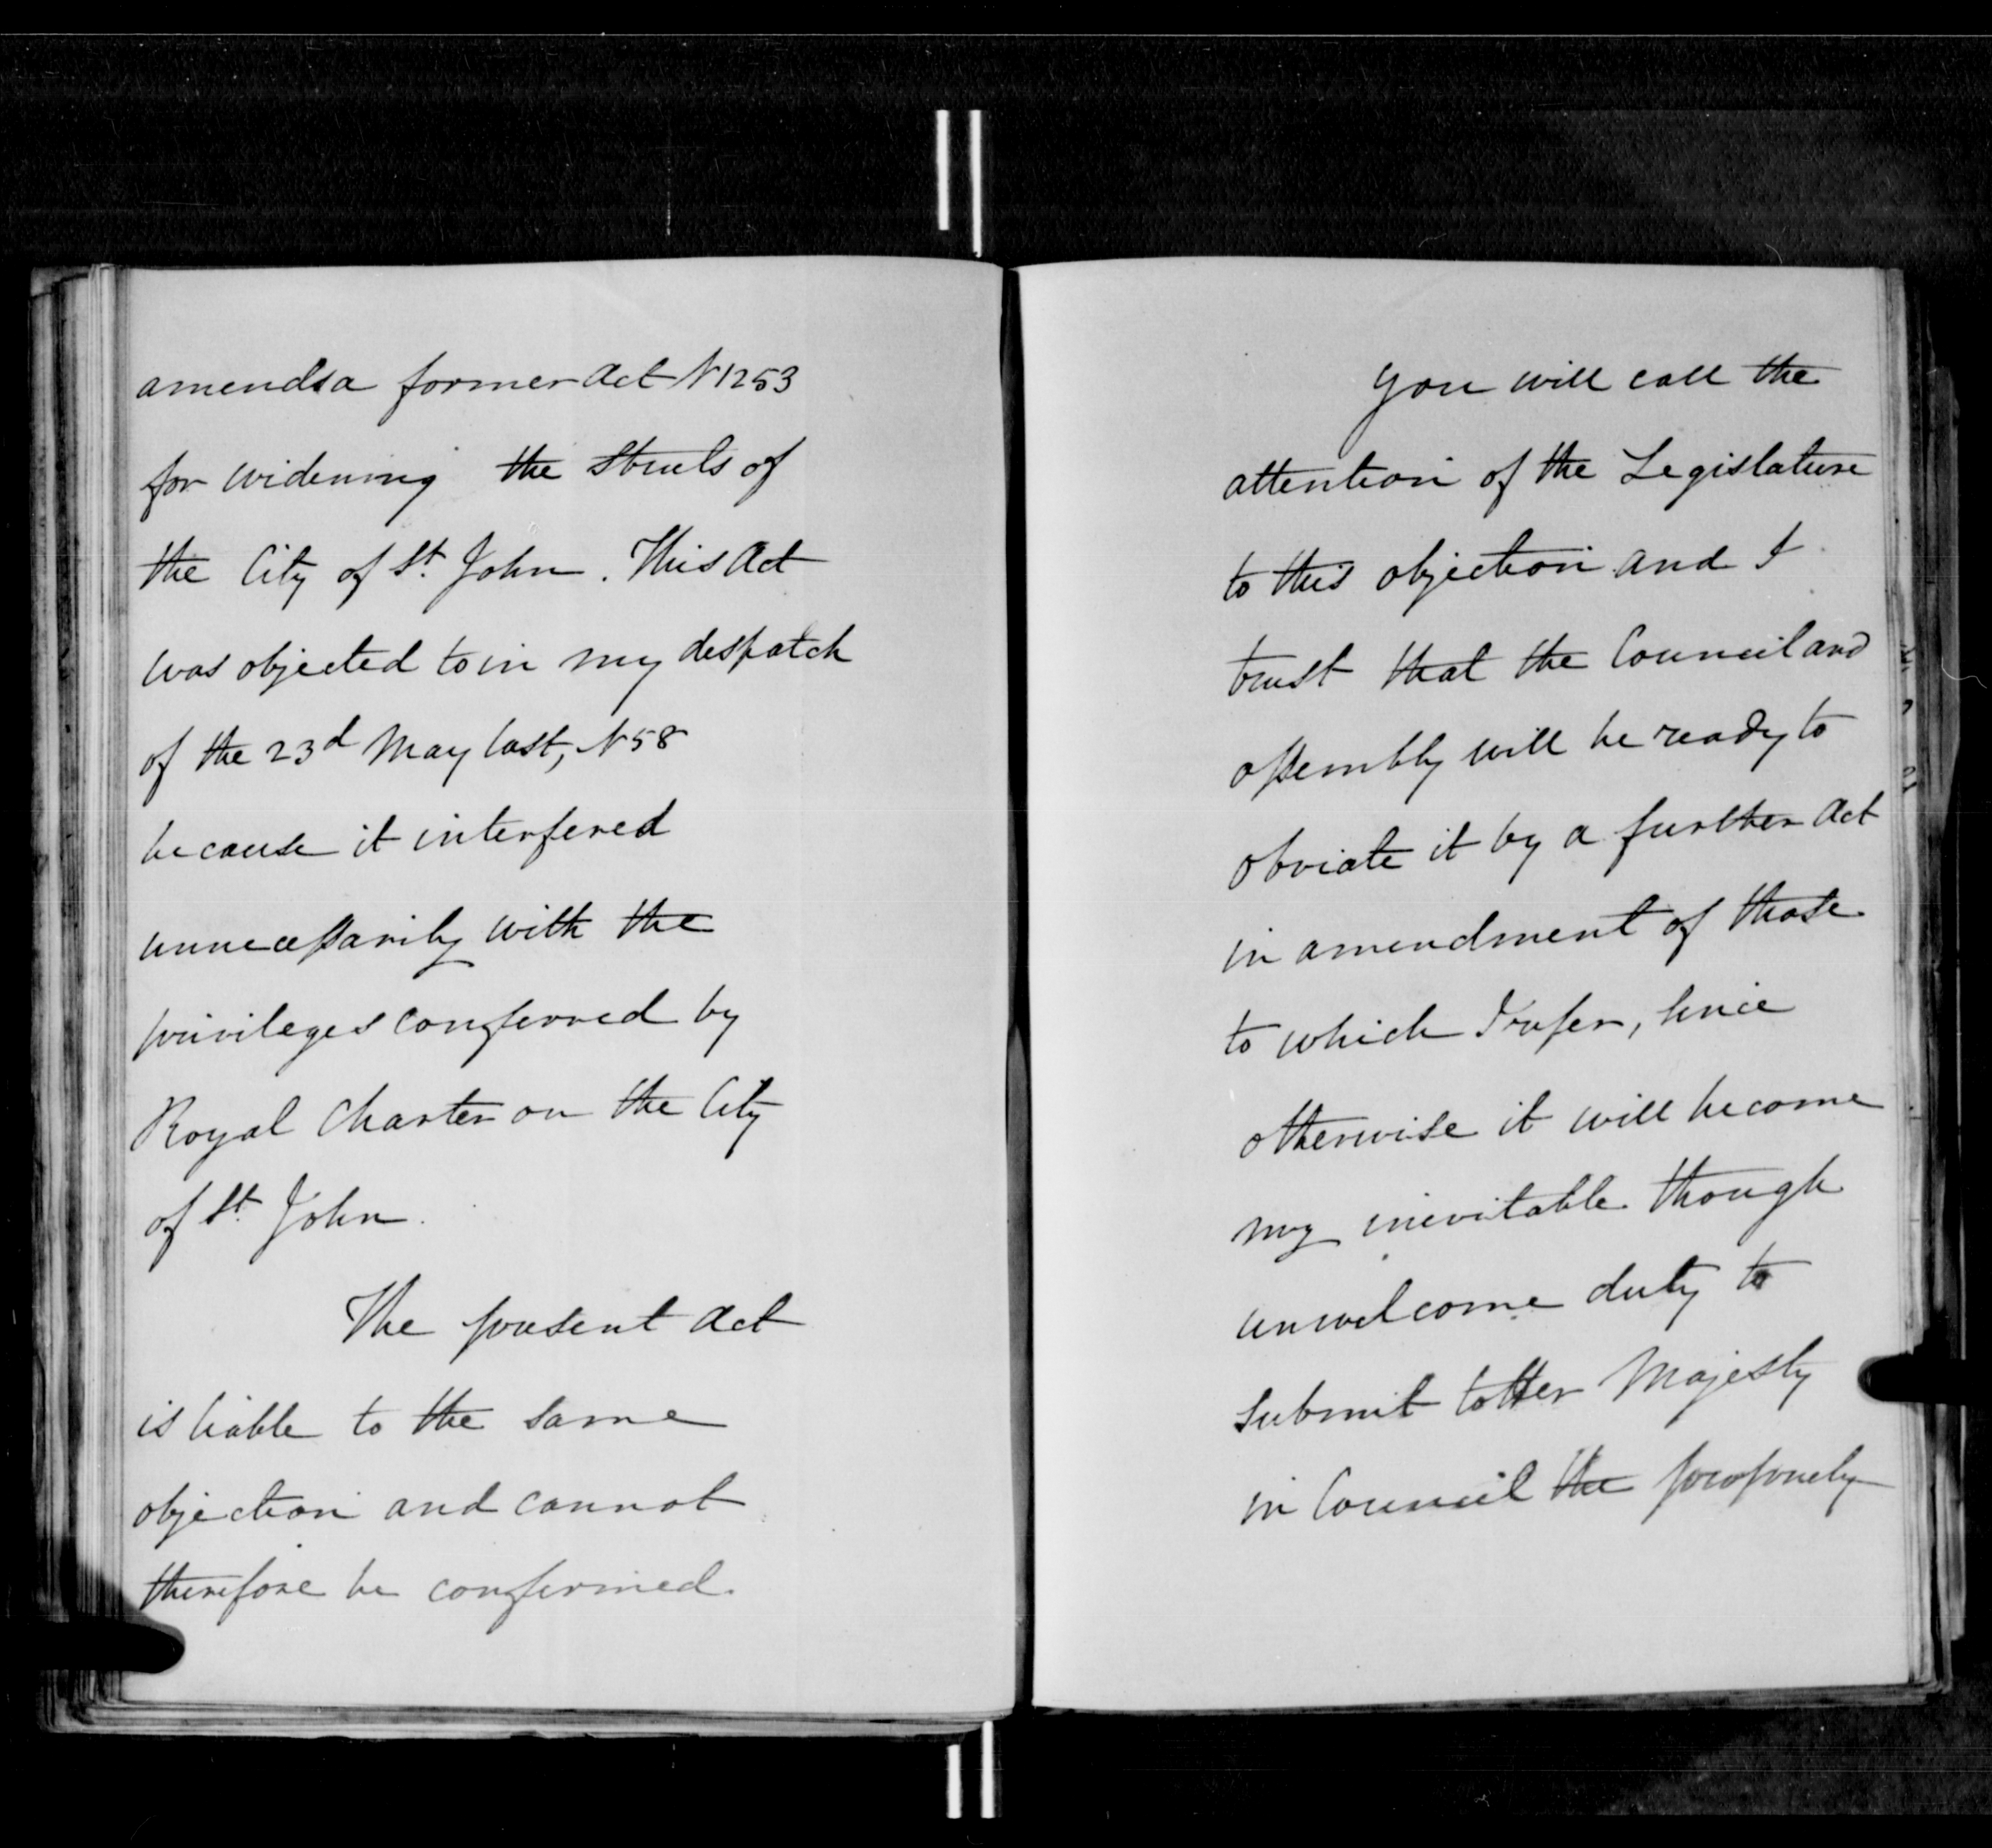 amends a former Act N 1253
for widening the Streets of
the City of St. John. This Act
was objected to in my despatch
of the 23d May last, N 58
because it interfered
unnecessarily with the
privileges conferred by
Royal Charter on the City
of St. John.
The present Act
is liable to the same
objection and cannot
therefore be confirmed.
You will call the
attention of the Legislature
to this objection and I
trust that the Council and
Assembly will be ready to
obviate it by a further Act
in amendment of those
to which I refer, since
otherwise it will become
my inevitable though
unwelcome duty to
submit to Her Majesty
in Council the